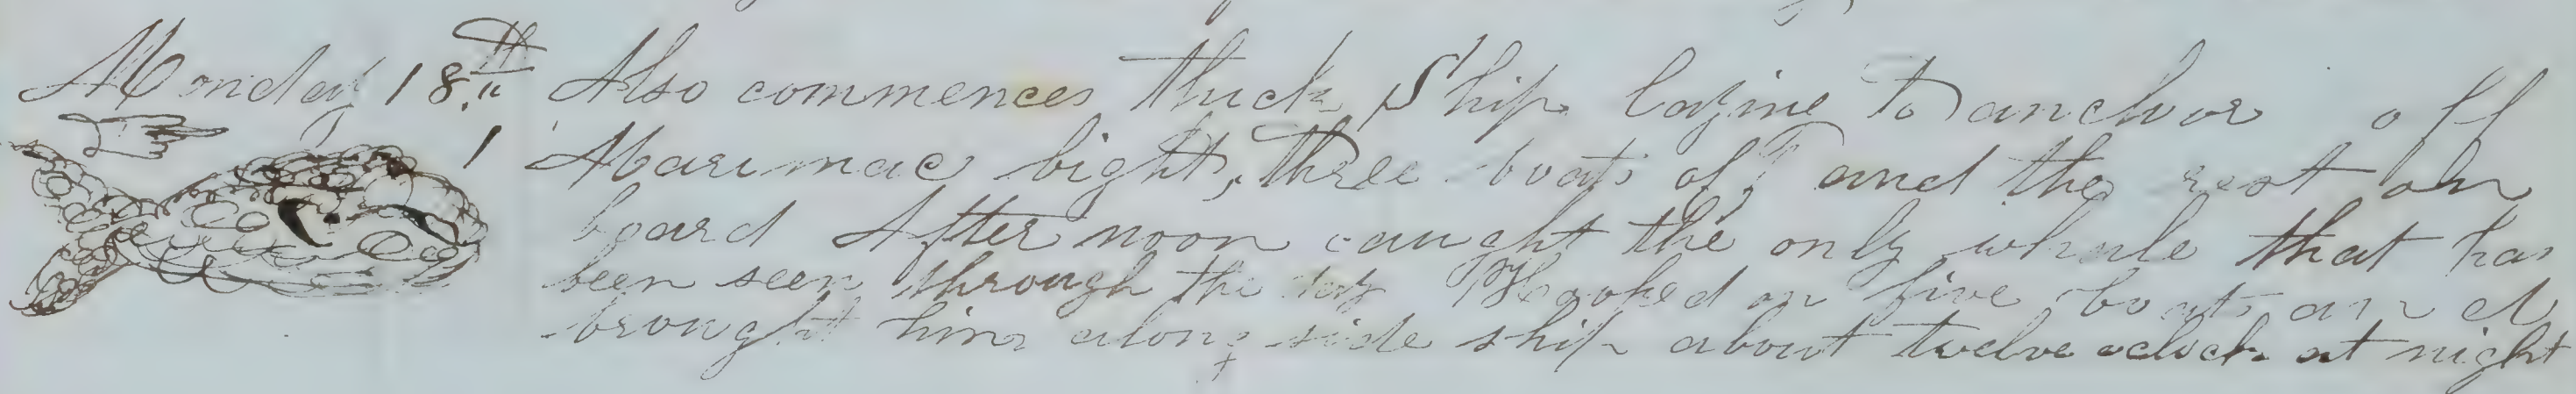 Monday 18th Also commences thick Ship laying to anchor off
1 bight, three boats off and the rest on
board After noon caught the only whale that has
been seen through the day Hooked on five boats and
brought him along side ship about twelve oclock at night